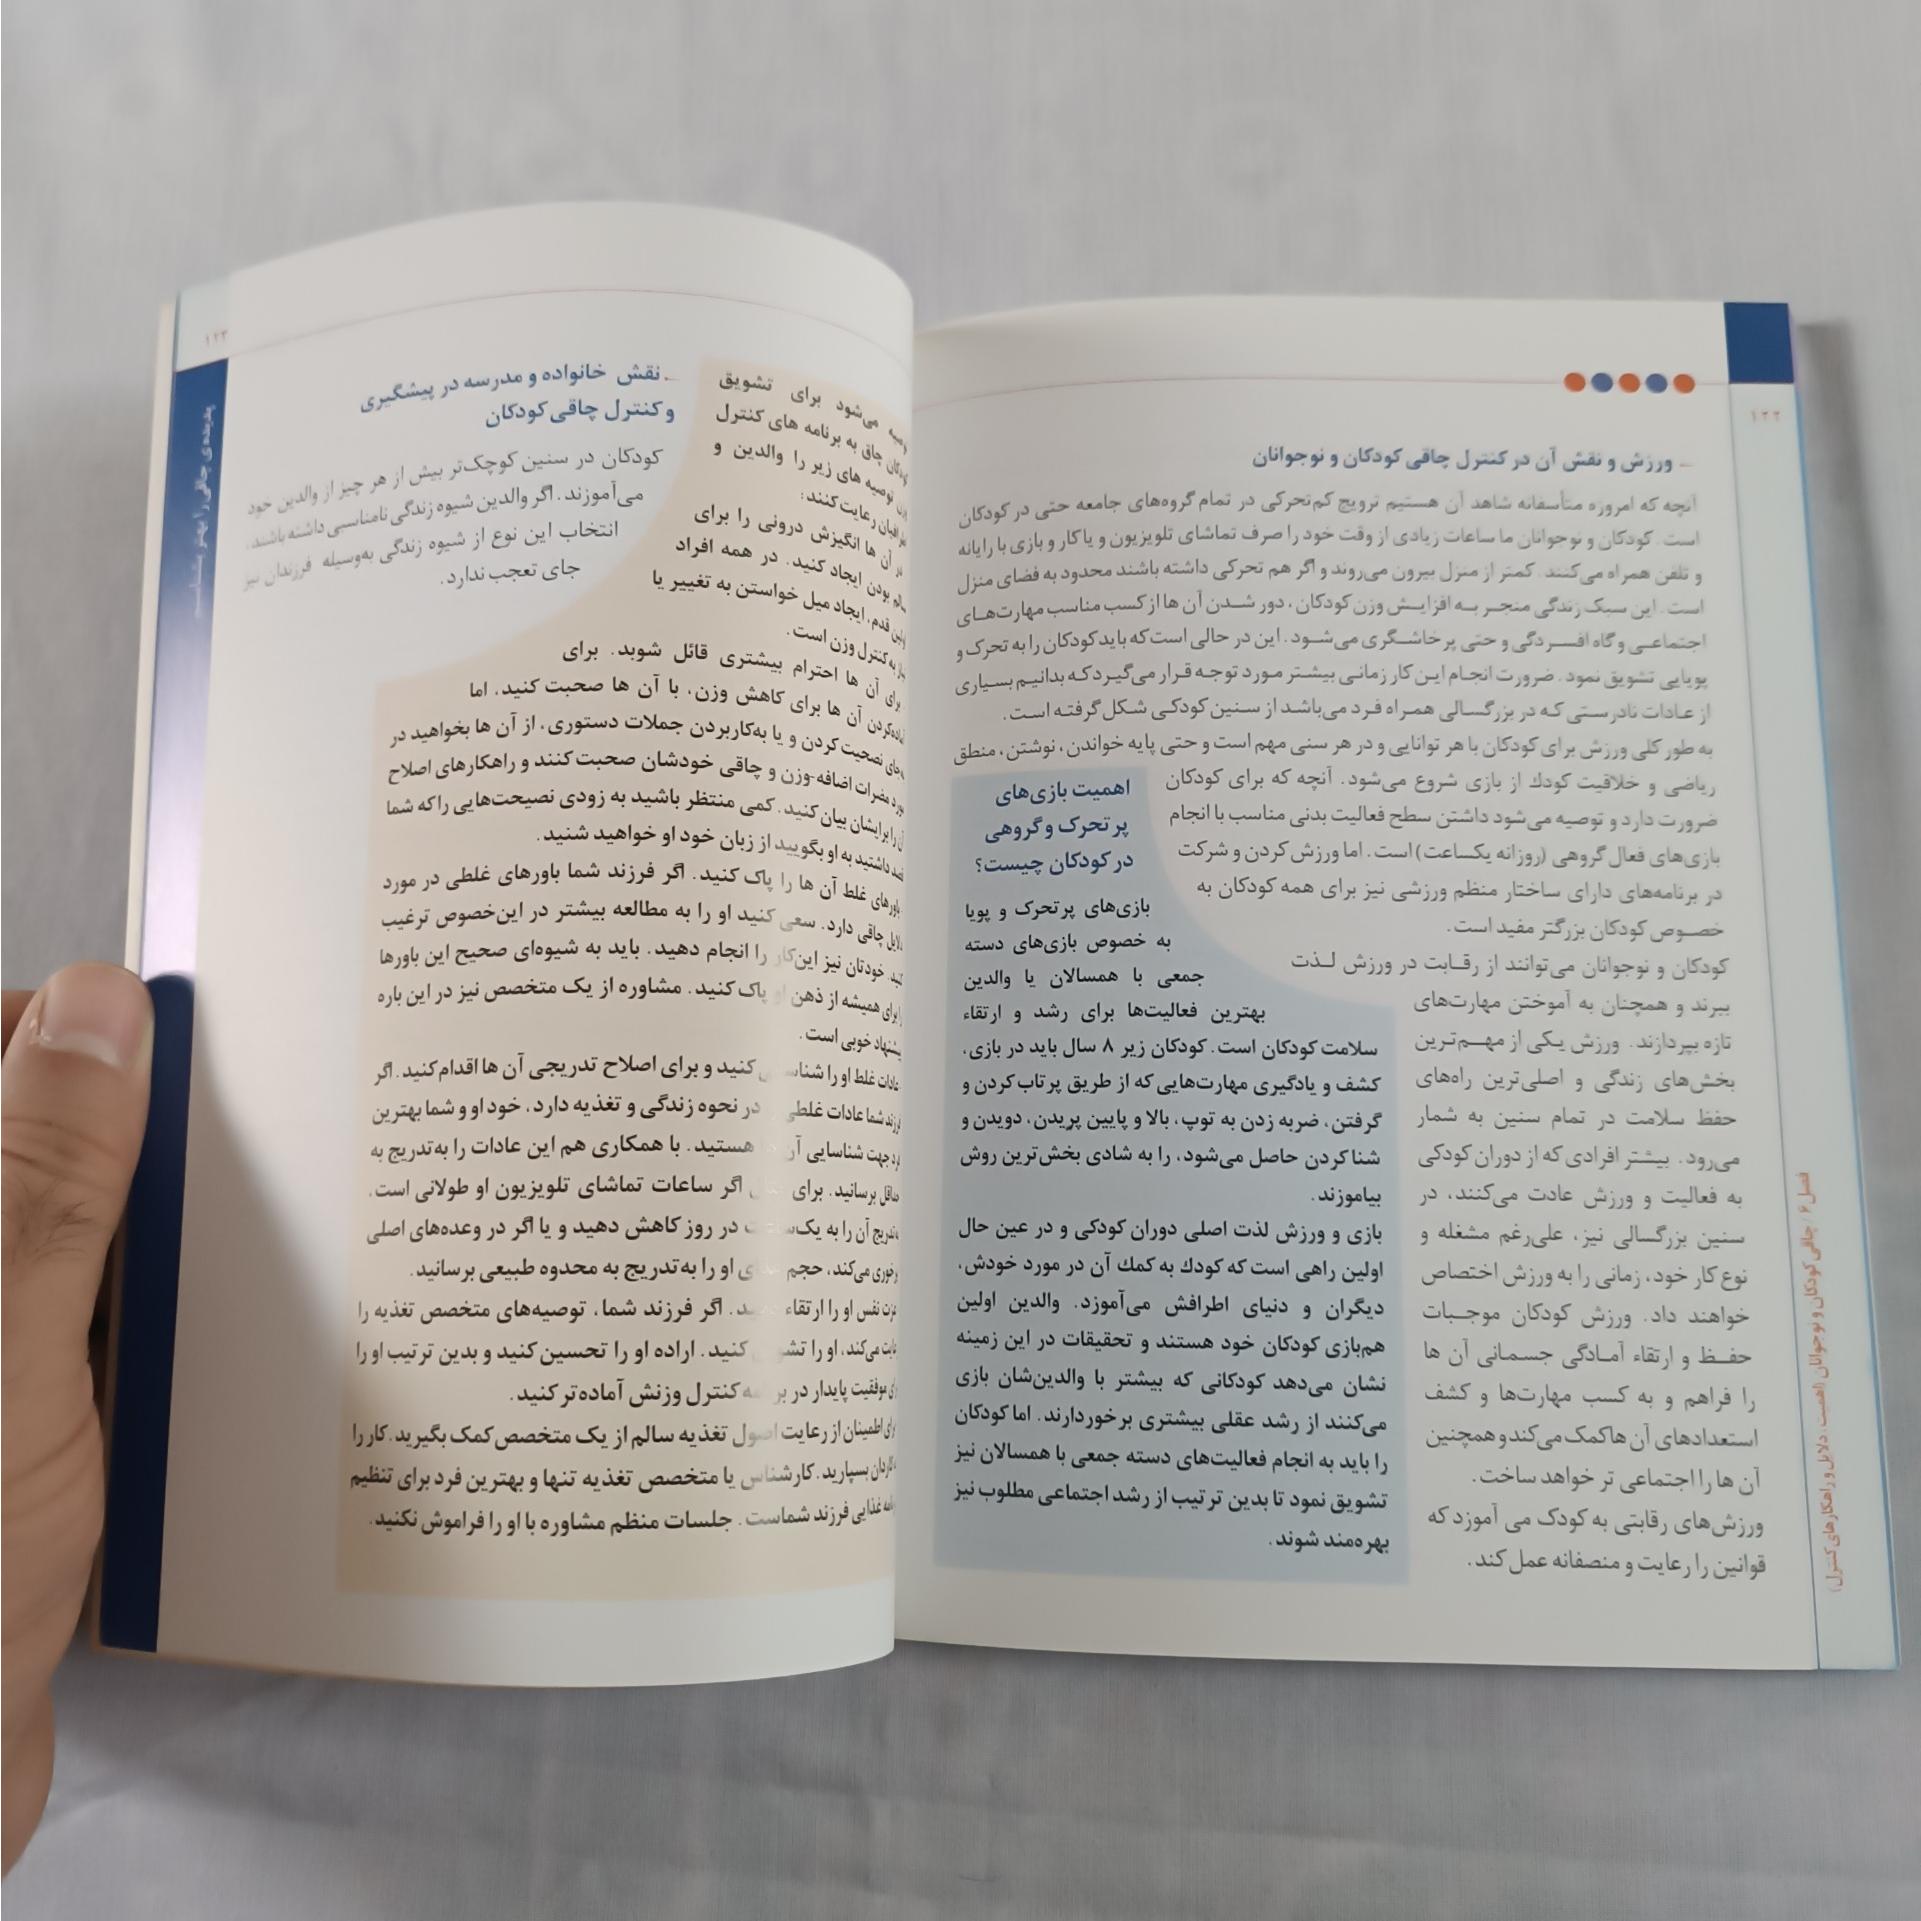 ۱۲۲
ورزش و نقش آن در کنترل چاقی کودکان و نوجوانان
آنچه که امروزه متأسفانه شاهد آن هستیم ترویج کم‌تحرکی در تمام گروه‌های جامعه حتی در کودکان
است. کودکان و نوجوانان ما ساعات زیادی از وقت خود را صرف تماشای تلویزیون و یا کار و بازی با رایانه
و تلفن همراه می‌کنند. کمتر از منزل بیرون می‌روند و اگر هم تحرکی داشته باشند محدود به فضای منزل
است. این سبک زندگی منجر به افزایش وزن کودکان، دور شدن آن ها از کسب مناسب مهارت‌های
اجتماعی و گاه افسردگی و حتی پرخاشگری می‌شود. این در حالی است که باید کودکان را به تحرک و
پویایی تشویق نمود. ضرورت انجام این کار زمانی بیشتر مورد توجه قرار می‌گیرد که بدانیم بسیاری
از عادات نادرستی که در بزرگسالی همراه فرد می‌باشد از سنین کودکی شکل گرفته است.
به طور کلی ورزش برای کودکان با هر توانایی و در هر سنی مهم است و حتی پایه خواندن، نوشتن، منطق
ریاضی و خلاقیت کودك از بازی شروع می‌شود. آنچه که برای کودکان
ضرورت دارد و توصیه می‌شود داشتن سطح فعالیت بدنی مناسب با انجام
بازی‌های فعال گروهی (روزانه یکساعت) است. اما ورزش کردن و شرکت
در برنامه‌های دارای ساختار منظم ورزشی نیز برای همه کودکان به
خصوص کودکان بزرگتر مفید است.
کودکان و نوجوانان می‌توانند از رقابت در ورزش لذت
ببرند و همچنان به آموختن مهارت‌های
تازه بپردازند. ورزش یکی از مهم‌ترین
بخش‌های زندگی و اصلی‌ترین راه‌های
حفظ سلامت در تمام سنین به شمار
می‌رود. بیشتر افرادی که از دوران کودکی
به فعالیت و ورزش عادت می‌کنند، در
سنین بزرگسالی نیز، علی‌رغم مشغله و
نوع کار خود، زمانی را به ورزش اختصاص
خواهند داد. ورزش کودکان موجبات
حفظ و ارتقاء آمادگی جسمانی آن ها
را فراهم و به کسب مهارت‌ها و کشف
استعدادهای آن ها کمک می‌کند و همچنین
آن ها را اجتماعی تر خواهد ساخت.
ورزش‌های رقابتی به کودک می آموزد که
قوانین را رعایت و منصفانه عمل کند.
اهمیت بازی‌های
پرتحرک و گروهی
در کودکان چیست؟
بازی‌های پرتحرک و پویا
به خصوص بازی‌های دسته
جمعی با همسالان یا والدین
بهترین فعالیت‌ها برای رشد و ارتقاء
سلامت کودکان است. کودکان زیر ۸ سال باید در بازی،
کشف و یادگیری مهارت‌هایی که از طریق پرتاب کردن و
گرفتن، ضربه زدن به توپ، بالا و پایین پریدن، دویدن و
شنا کردن حاصل می‌شود، را به شادی بخش‌ترین روش
بیاموزند.
بازی و ورزش لذت اصلی دوران کودکی و در عین حال
اولین راهی است که کودك به کمك آن در مورد خودش،
دیگران و دنیای اطرافش می‌آموزد. والدین اولین
هم‌بازی کودکان خود هستند و تحقیقات در این زمینه
نشان می‌دهد کودکانی که بیشتر با والدین‌شان بازی
می‌کنند از رشد عقلی بیشتری برخوردارند. اما کودکان
را باید به انجام فعالیت‌های دسته جمعی با همسالان نیز
تشویق نمود تا بدین ترتیب از رشد اجتماعی مطلوب نیز
بهره‌مند شوند.
فصل ۶ / چاقی کودکان و نوجوانان (اهمیت، دلایل و راهکارهای کنترل)
۱۲۳
پدیده‌ی چاقی را بهتر بشناسیم
نقش خانواده و مدرسه در پیشگیری
و کنترل چاقی کودکان
کودکان در سنین کوچک‌تر بیش از هر چیز از والدین خود
می‌آموزند. اگر والدین شیوه زندگی نامناسبی داشته باشند،
انتخاب این نوع از شیوه زندگی به‌وسیله فرزندان نیز
جای تعجب ندارد.
می‌شود برای تشویق
چاق به برنامه های کنترل
توصیه های زیر را والدین و
رعایت کنند:
در آن ها انگیزش درونی را برای
سالم بودن ایجاد کنید. در همه افراد
اولین قدم، ایجاد میل خواستن به تغییر یا
به کنترل وزن است.
برای آن ها احترام بیشتری قائل شوید. برای
آماده‌کردن آن ها برای کاهش وزن، با آن ها صحبت کنید. اما
به‌جای نصحیت کردن و یا به‌کاربردن جملات دستوری، از آن ها بخواهید در
مورد مضرات اضافه-وزن و چاقی خودشان صحبت کنند و راهکارهای اصلاح
آن را برایشان بیان کنید. کمی منتظر باشید به زودی نصیحت‌هایی را که شما
قصد داشتید به او بگویید از زبان خود او خواهید شنید.
باورهای غلط آن ها را پاک کنید. اگر فرزند شما باورهای غلطی در مورد
دلایل چاقی دارد. سعی کنید او را به مطالعه بیشتر در این‌خصوص ترغیب
کنید. خودتان نیز این‌کار را انجام دهید. باید به شیوه‌ای صحیح این باورها
را برای همیشه از ذهن او پاک کنید. مشاوره از یک متخصص نیز در این باره
پیشنهاد خوبی است.
عادات غلط او را کنید و برای اصلاح تدریجی آن ها اقدام کنید. اگر
فرزند شما عادات غلطی در نحوه زندگی و تغذیه دارد، خود او و شما بهترین
فرد جهت شناسایی آن هستید. با همکاری هم این عادات را به‌تدریج به
حداقل برسانید. برای اگر ساعات تماشای تلویزیون او طولانی است.
به‌تدریج آن را به در روز کاهش دهید و یا اگر در وعده‌های اصلی
پرخوری می‌کند، حجم او را به‌تدریج به محدوه طبیعی برسانید.
عزت نفس او را ارتقاء اگر فرزند شما، توصیه‌های متخصص تغذیه را
رعایت می‌کند، او را کنید. اراده او را تحسین کنید و بدین ترتیب او را
برای موفقیت پایدار در کنترل وزنش آماده‌تر کنید.
برای اطمینان از رعایت اصول تغذیه سالم از یک متخصص کمک بگیرید. کار را
به کاردان بسپارید. کارشناس یا متخصص تغذیه تنها و بهترین فرد برای تنظیم
برنامه غذایی فرزند شماست. جلسات منظم مشاوره با او را فراموش نکنید.